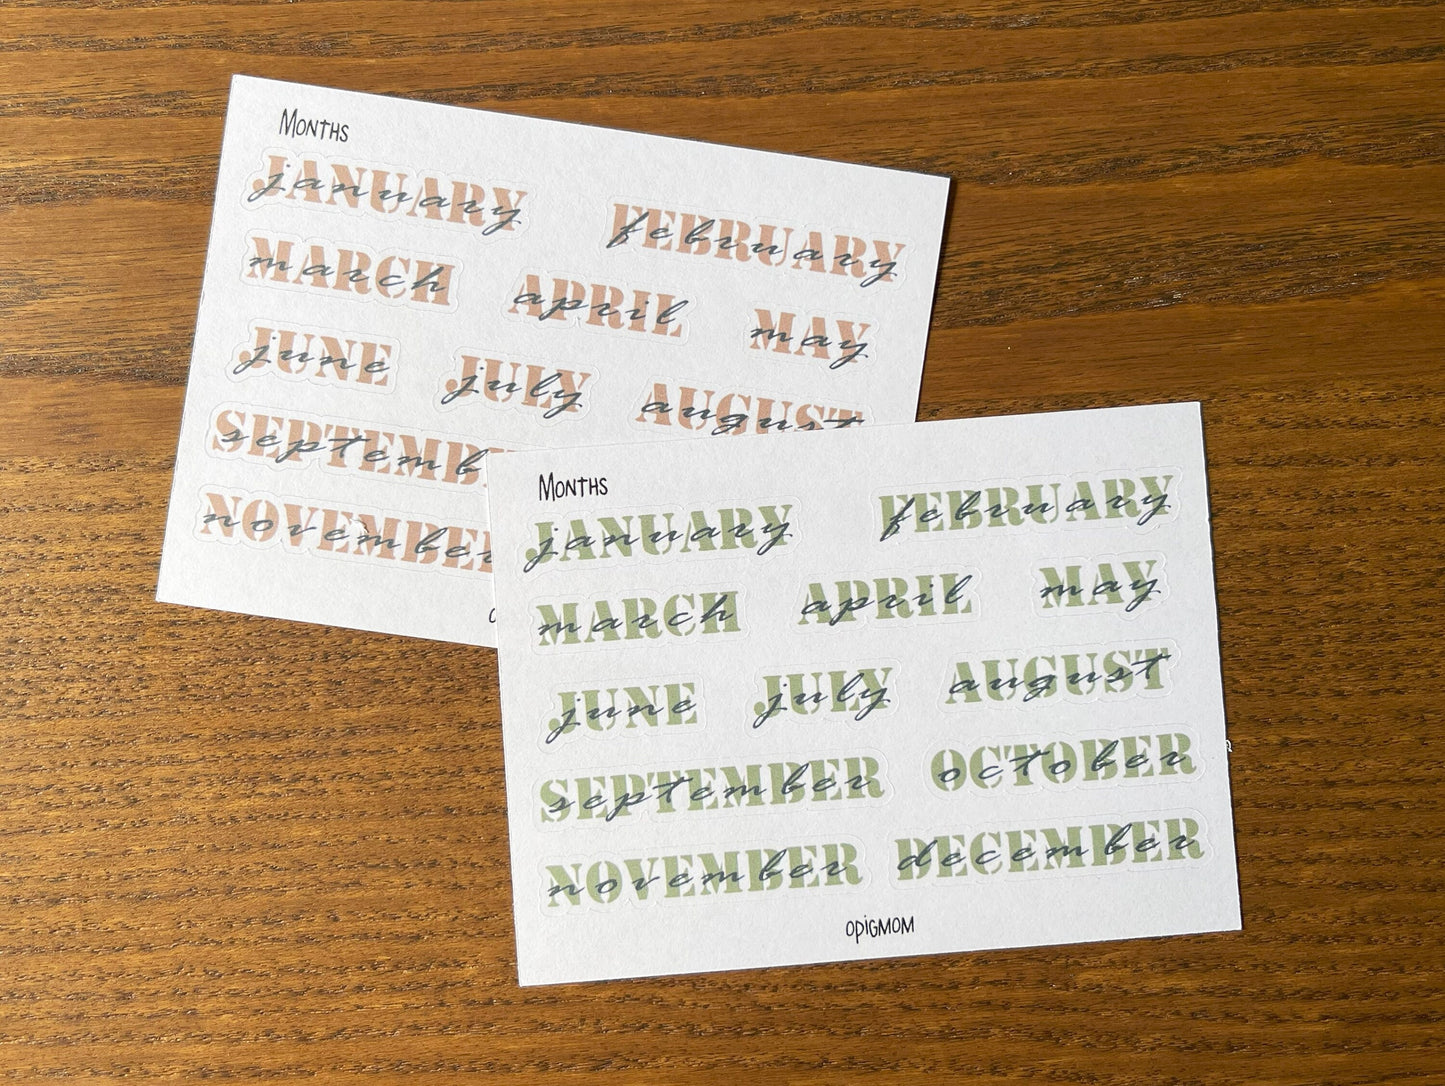 Months
JANUARY january FEBRUARY february
MARCH march APRIL april MAY may
JUNE june JULY july AUGUST august
SEPTEMB septemb
NOVEMBE november
Months
JANUARY january FEBRUARY february
MARCH march APRIL april MAY may
JUNE june JULY july AUGUST august
SEPTEMBER september OCTOBER october
NOVEMBER november DECEMBER december
OPIGMOM